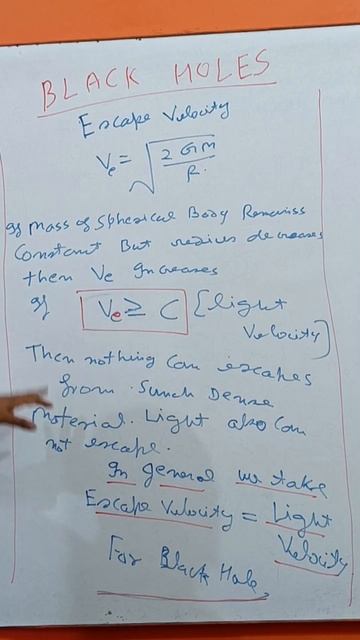 BLACK HOLES
Escape Velocity
Ve = √2GM/R.
If Mass of Spherical Body Remains
Constant But radius decreases
then Ve Increases
If Ve ≥ C [light
Velocity]
Then nothing Can escapes
from Such Dense
Material. Light also Can
not escape.
In general we take
Escape Velocity = Light
Velocity
For Black Hole.